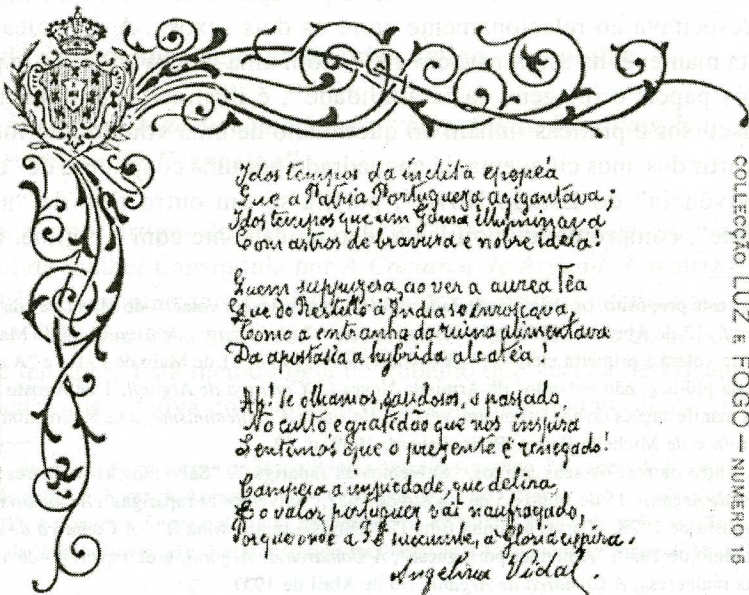 Idos tempos da ínclita epopea
Que a Patria Portugueza agigantava;
Idos tempos que um Gama illuminava
Com astros de bravura e nobre ideia!
Quem suppuzera, ao ver a aurea Têa
Que do Restello á India se enroscava,
Como a entranha da ruina alimentava
Da apostasia a hybrida alcatêa!
Ay! Se olhamos, saudosos, o passado,
No culto e gratidão que nos inspira
Sentimos que o presente é renegado!
Campeia a impiedade, que delira,
E o valor portuguez vai naufragado,
Porque onde a Fé succumbe, a Gloria expira.
Angelina Vidal.
COLLECÇÃO LUZ E FOGO NUMERO 16